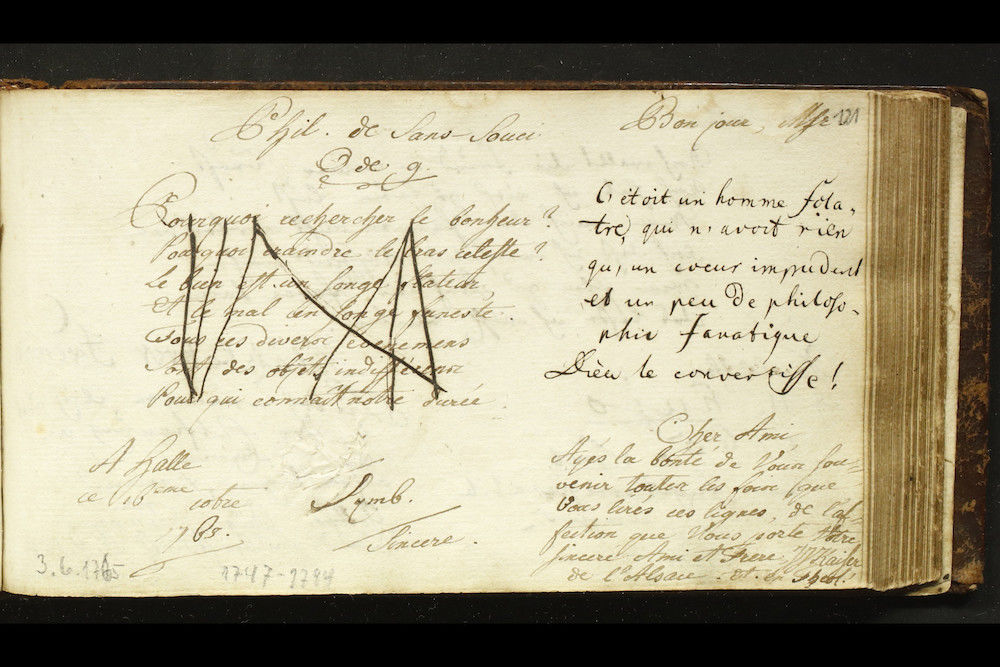 Phil. de Sans Souci
Bon jour,
121
Pourquoi rechercher le bonheur?
Pourquoi craindre le bras celeste?
Le bien est un songe flateur,
Et le mal un songe funeste.
Tous ces divers evenemens
Sont des objets indifferens
Pour qui connait notre durée.
C'étoit un homme fola-
tre, qui n'avoit rien
qu'un coeur impudent
et un peu de philoso-
phie fanatique
Dieu le convertisse!
A Halle
ce 16eme
1765.
Symb.
Sincere.
Cher Ami
Ayés la bonté de Vous sou-
venir toutes les fois que
Vous lires ces lignes, de l'af-
fection que Vous porte Votre
sincere Ami et Frere
de l'Alsace
3.6.1765
1747-1794